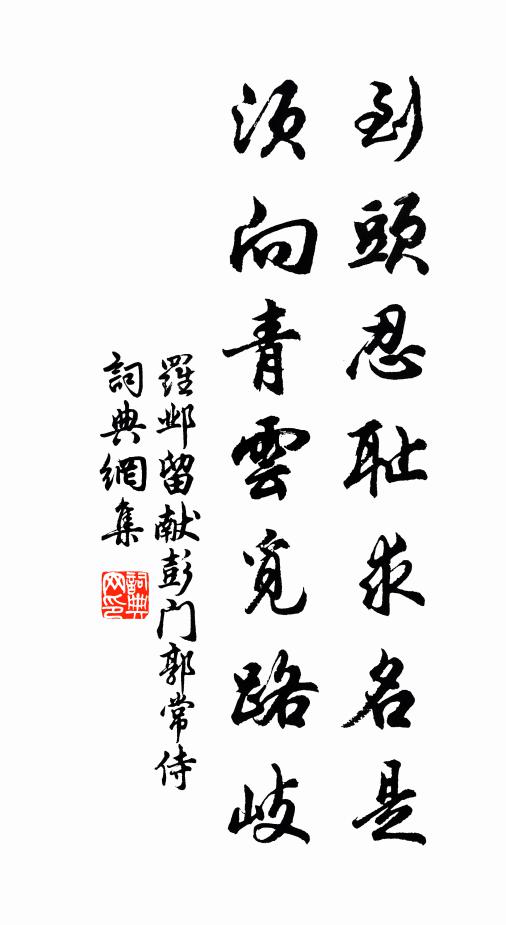 到頭忍耻求名是
須向青雲覓路岐
羅邺留献彭门郭常侍
詞典網集
詞典网印